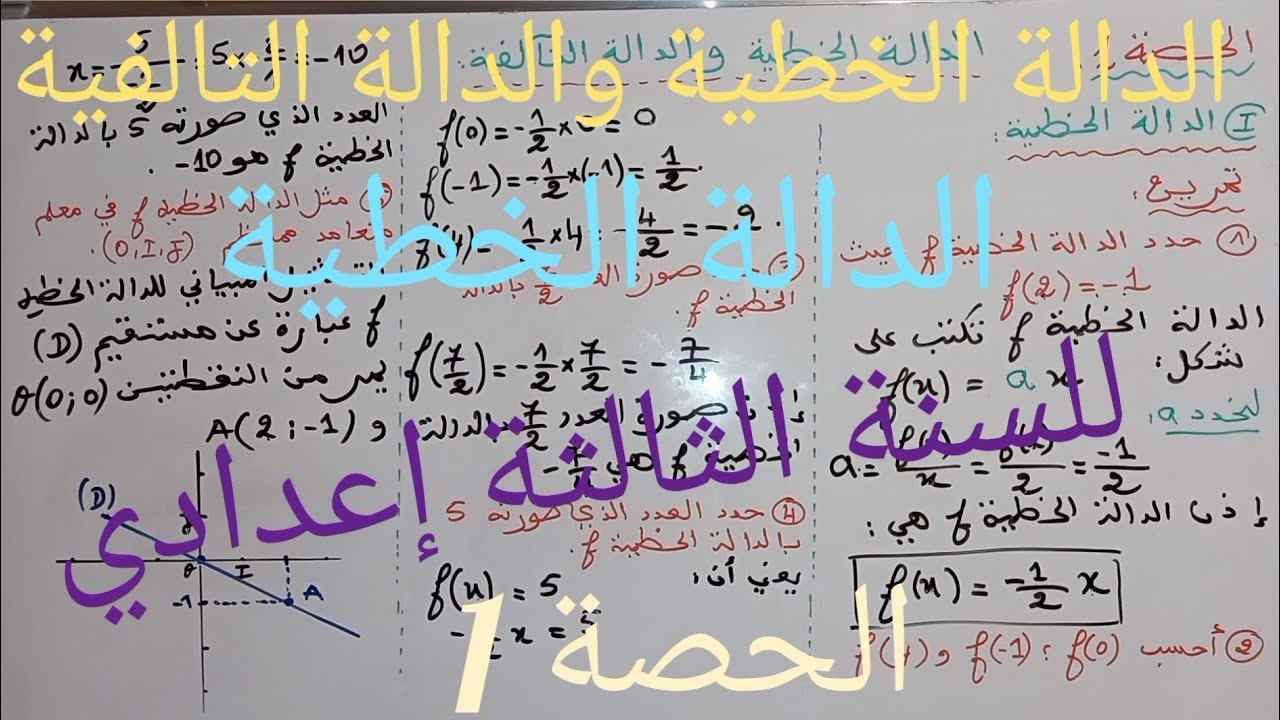 الدالة الخطية والدالة التالفية
الدالة الخطية
للسنة الثالثة إعدادي
الحصة 1
الدالة الخطية والدالة التآلفية:
I الدالة الخطية:
تمرين:
① حدد الدالة الخطية f حيث
f(2) = -1
الدالة الخطية f تكتب على
شكل:
f(x) = a x
لنحدد a:
= -1/2
إذن الدالة الخطية f هي:
f(x) = -1/2 x
② أحسب f(0) ؛ f(-1) و f(4)
f(0) = -1/2 × = 0
f(-1) = -1/2 × (-1) = 1/2
× 4 = -4/2 = -2
صورة
بالدالة
الخطية f.
f(7/2) = -1/2 × 7/2 = -7/4
صورة العدد 7/2 بالدالة
هي
④ حدد العدد الذي صورته 5
بالدالة الخطية f.
يعني أن:
f(x) = 5
x =
x = = -10
العدد الذي صورته 5 بالدالة
الخطية f هو -10.
مثل الدالة الخطية f في معلم
متعامد ممنظم (O, I, J).
للدالة الخطية
f عبارة عن مستقيم (D)
يمر من النقطتين O(0;0)
و A(2;-1)
(D)
J
O
I
A
-1